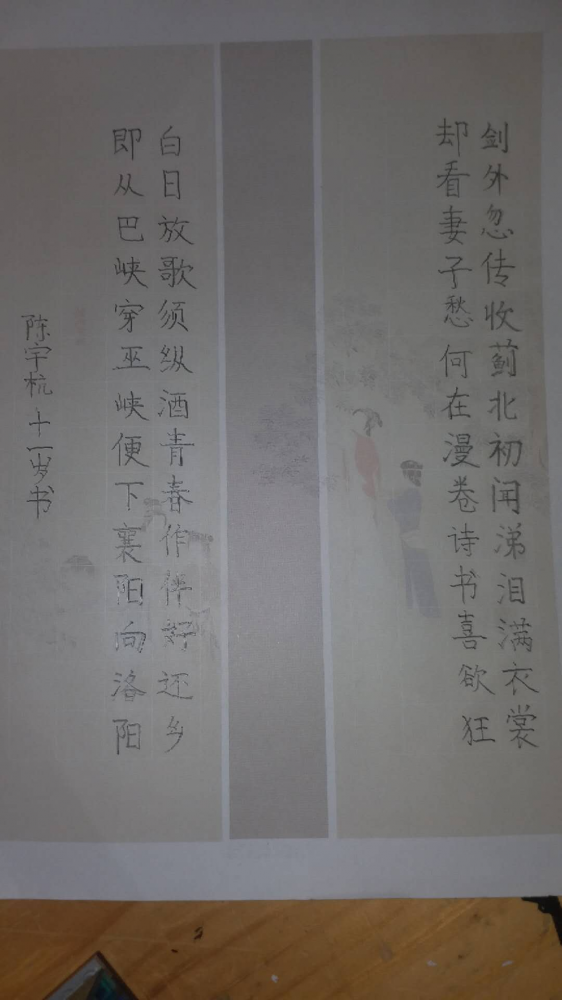 剑外忽传收蓟北初闻涕泪满衣裳
却看妻子愁何在漫卷诗书喜欲狂
白日放歌须纵酒青春作伴好还乡
即从巴峡穿巫峡便下襄阳向洛阳
陈宇杭十一岁书